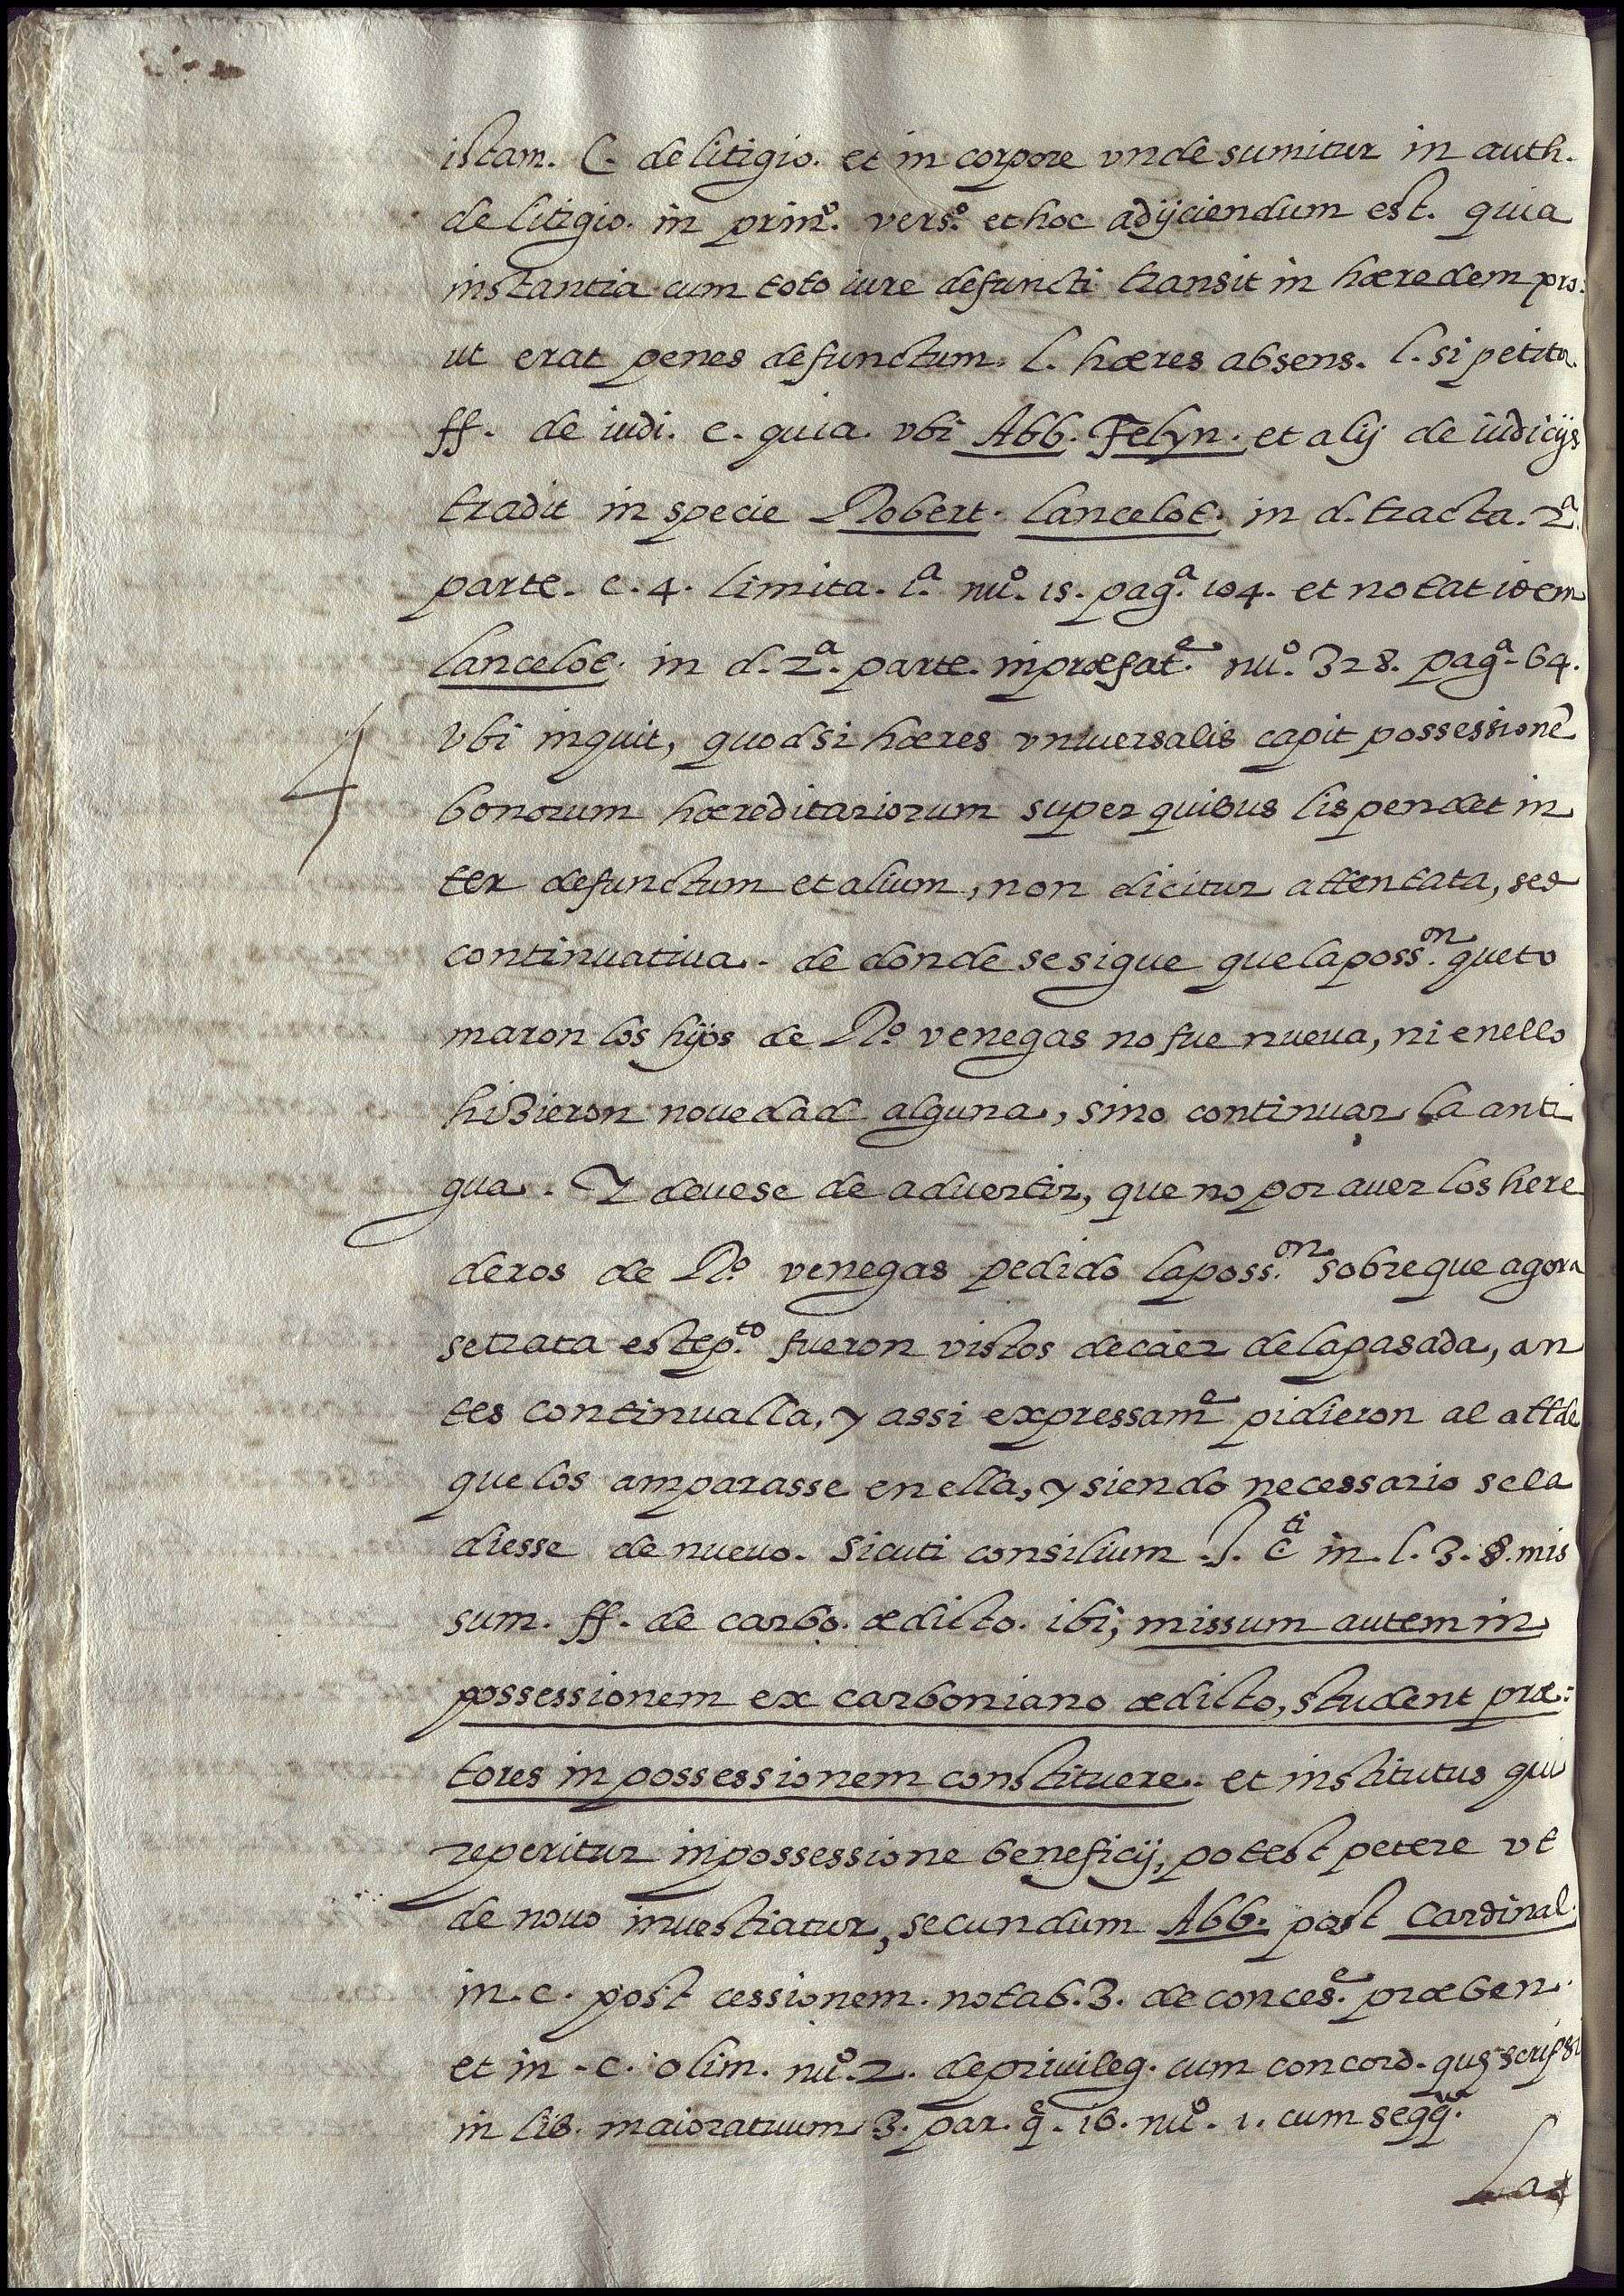 istam. C. de litigio. et in corpore vnde sumitur in auth.
de litigio. in prim.º versº. et hoc adijciendum est. quia
instantia cum toto iure defuncti transit in hæredem pro:
ut erat penes defunctum. l. hæres absens. l. si petitor.
ff. de iudi. c. quia. vbi Abb. Felyn. et alij de iudicijs
tradit in specie Robert. Lancelot. in d. tracta. 2ª.
parte. c. 4. limita. 1.ª nuº. 15. pagª. 104. et notat idem
Lancelot. in d. 2ª. parte. in præfat.e nuº. 328. pagª. 64.
4
Vbi inquit, quod si hæres vniuersalis capit possessionē
bonorum hæreditariorum super quibus lis pendet in
ter defunctum et alium, non dicitur attentata, sed
continuatiua. de donde se sigue que la poss.on que to
maron los hijos de Rº. venegas no fue nueua, ni en ello
hizieron nouedad alguna, sino continuar la anti
gua. Y deuese de aduertir, que no por auer los here
deros de Rº. venegas pedido la poss.on sobre que agora
se trata este p.to fueron vistos decaer de la pasada, an
tes continualla, y assi expressam.e pidieron al allde
que los amparasse en ella, y siendo necessario se la
diesse de nuevo. Sicuti consilium J. C.ti in. l. 3. §. mis
sum. ff. de carbo. ædicto. ibi; missum autem in
possessionem ex carboniano ædicto, student præ:
tores in possessionem constituere. et institutus qui
reperitur in possessione beneficij, potest petere vt
de nouo inuestiatur, secundum Abb. post Cardinal.
in. c. post cessionem. notab. 3. de conces.e præben.
et in. c. olim. nuº. 2. de priuileg. cum concord. quę scripsi
in lib. maioratuum 3. par. q. 16. nuº. 1. cum seqq.
La